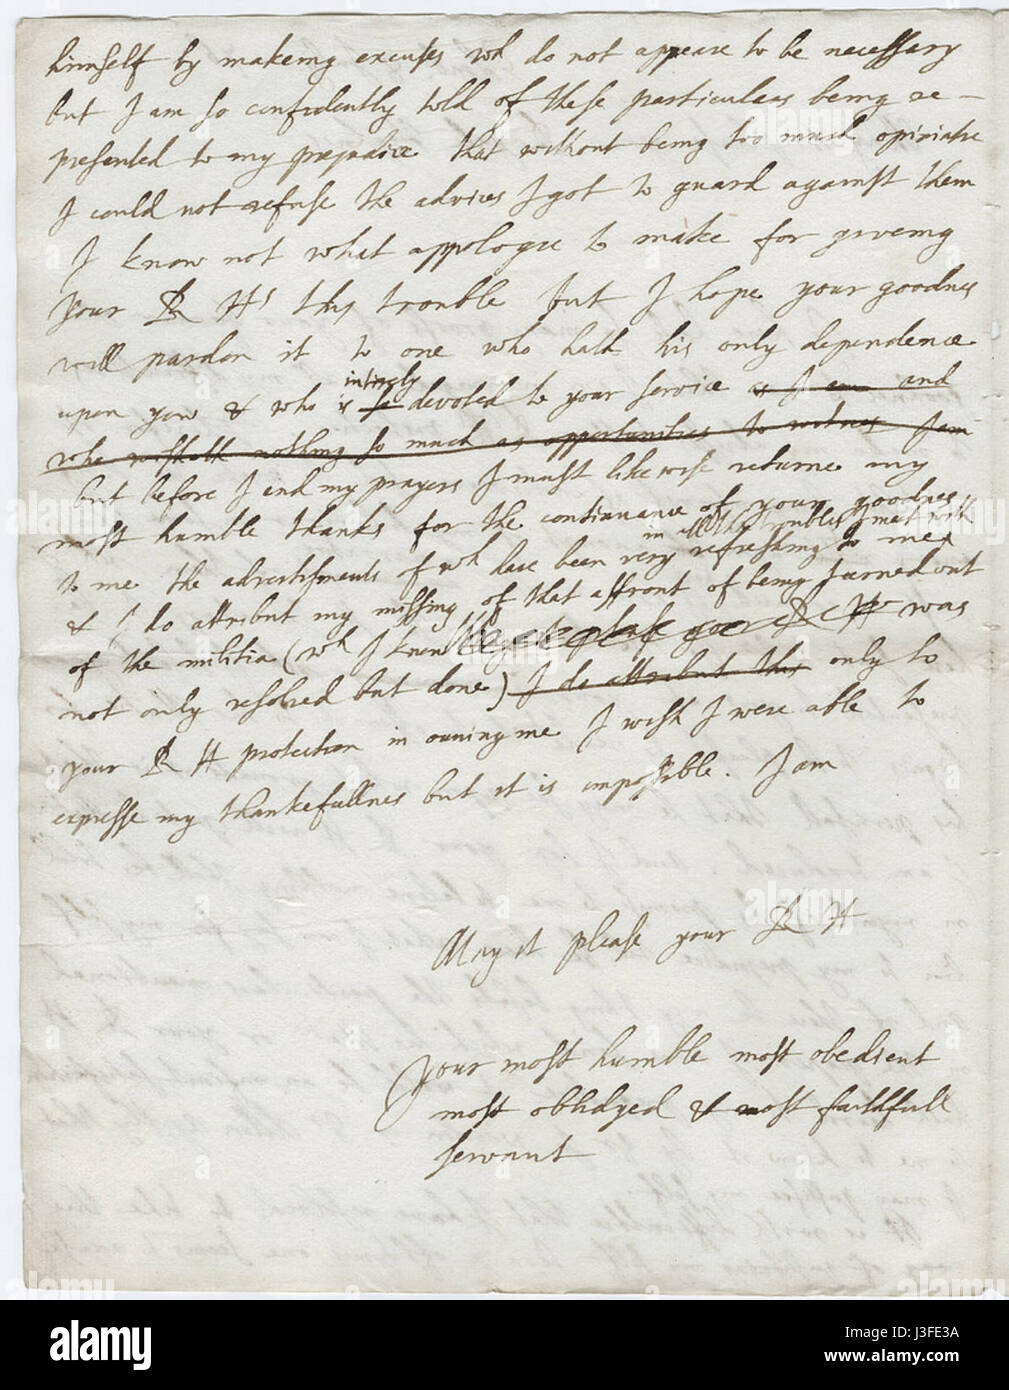 himself by makeing excuses wh do not appeare to be necessary
but I am so confidently told of these particulars being re-
presented to my prejudice that without being too much opiniatre
I could not refuse the advices I got to guard against them
I know not what appologie to make for giveing
your R Hs this trouble but I hope your goodnes
will pardon it to one who hath his only dependence
intirely
upon yow & who is devoted to your service as I am and
who wisheth nothing so much as opportunities to witnes I am
but before I end my prayers I must likewise returne my
most humble thanks for the continuance of your goodnes
in all the troubles I met with
to me the advertisments of wh have been very refreshing to me
& I do attribut my missing of that affront of being turned out
of the militia (wh I know your R H was
not only resolved but done) I do attribut this only to
your R H protection in owning me I wish I were able to
expresse my thankefullnes but it is impossible. I am
May it please your R H
Your most humble most obedient
most oblidged & most faithfull
servant
alamy
alamy
Image ID: J3FE3A
www.alamy.com